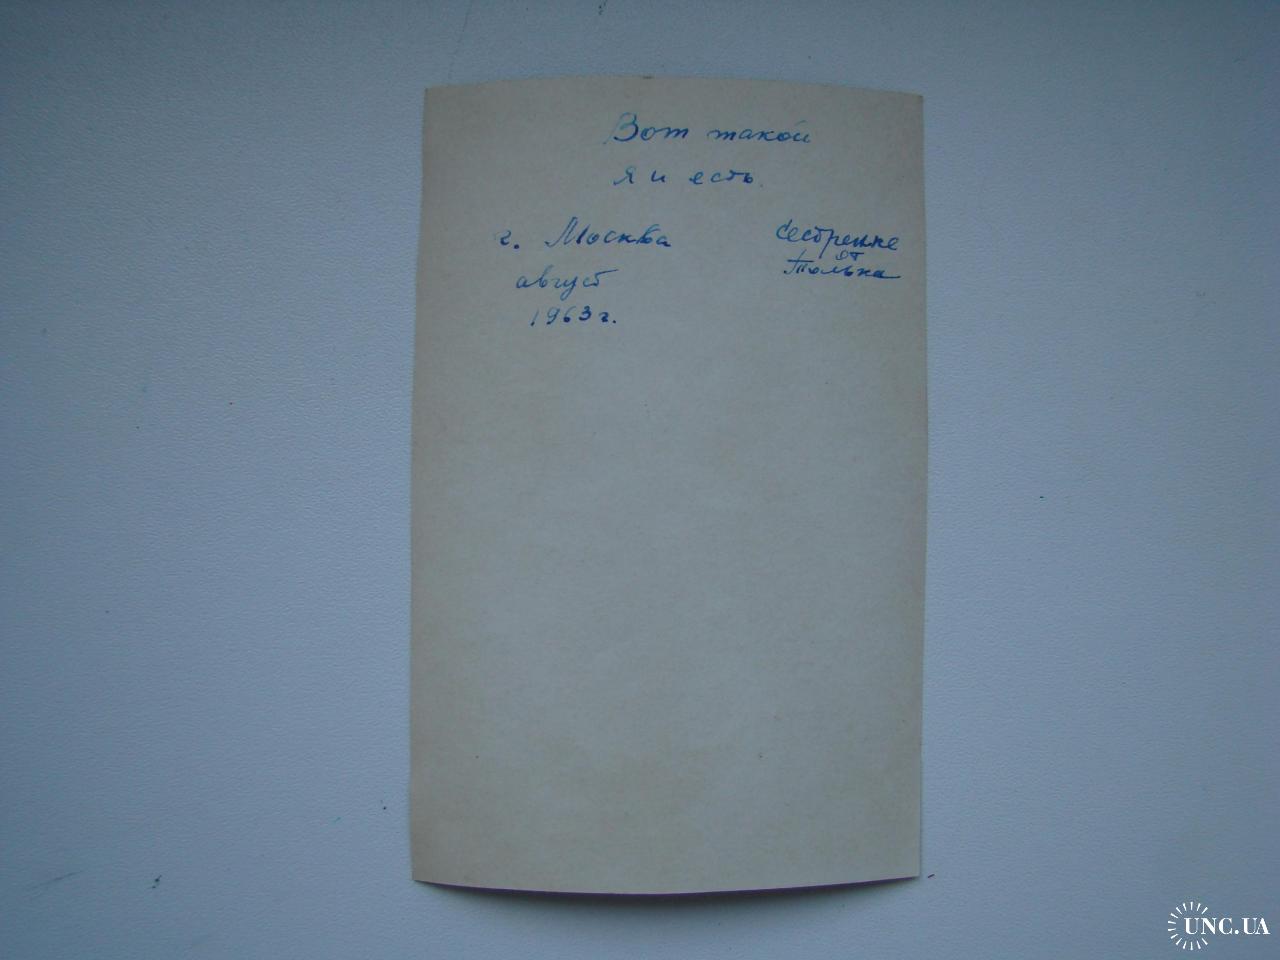 Вот такой
я и есть.
г. Москва
август
1963 г.
Сестренке
от
Толька
UNC.UA